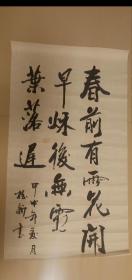 春前有雨花開
早秋後無霜
葉落遲
甲申年夏月
書